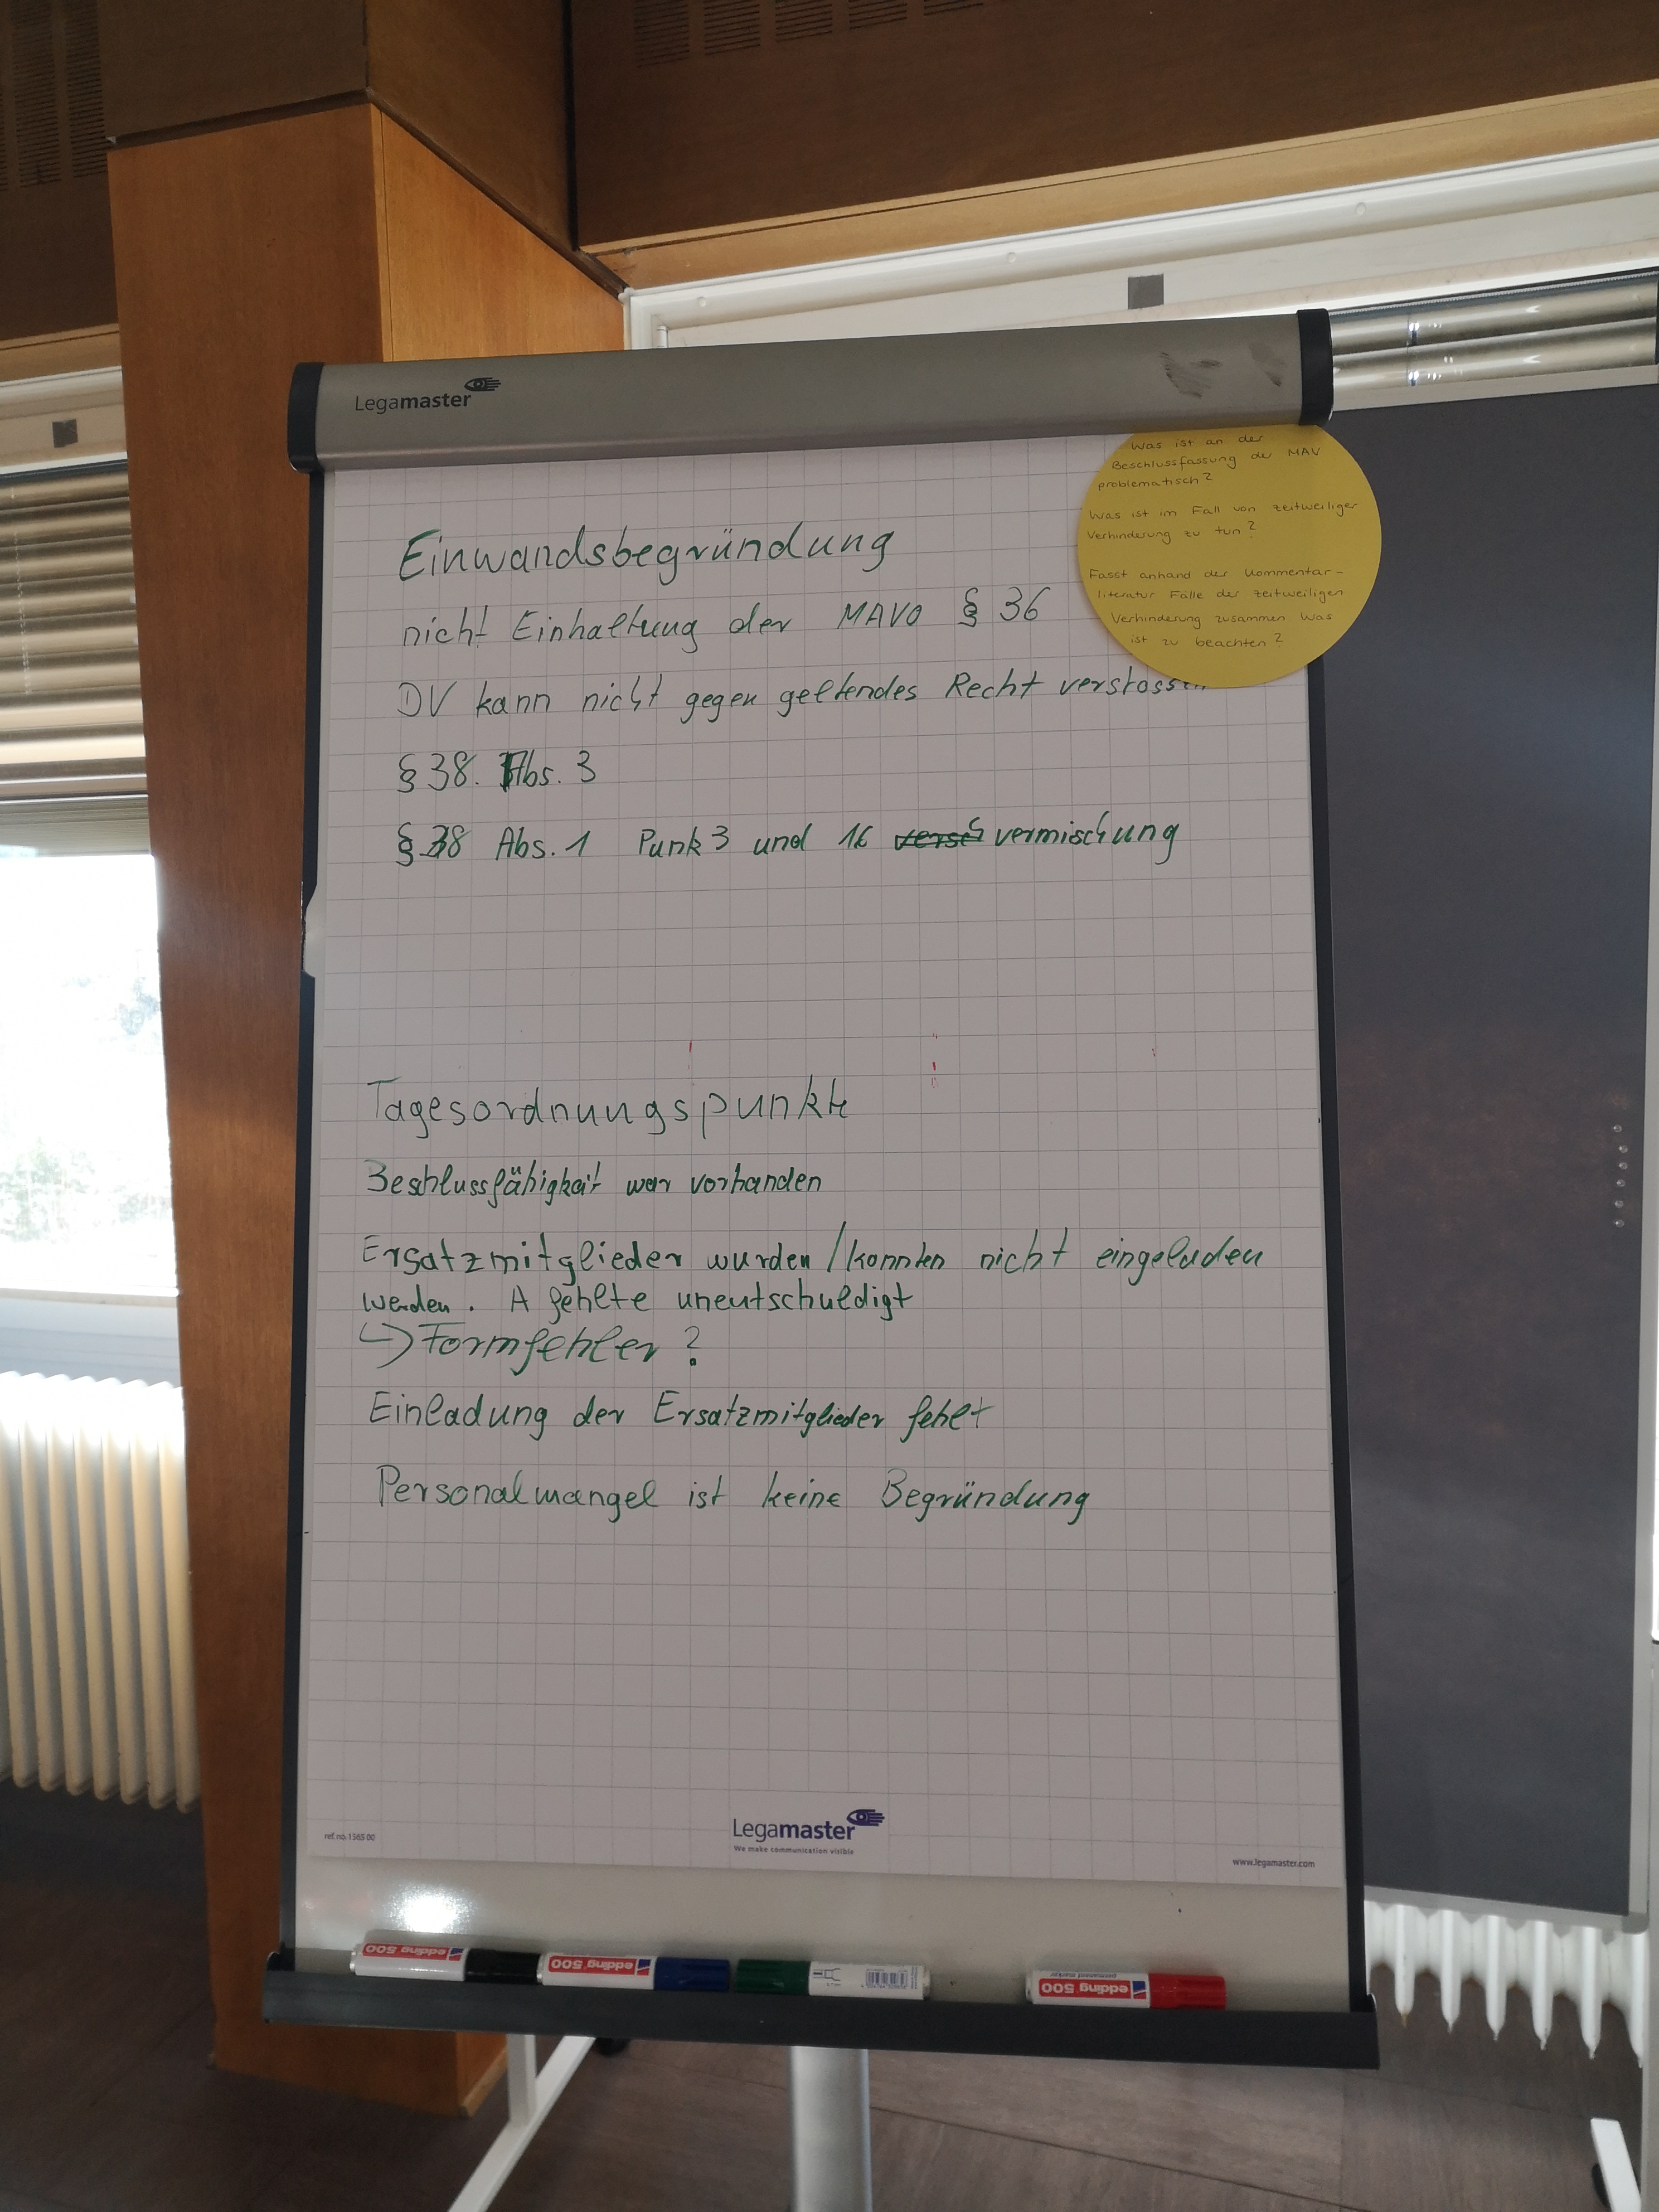 Legamaster
Was ist an der
Beschlussfassung der MAV
problematisch?
Was ist im Fall von zeitweiliger
Verhinderung zu tun?
Fasst anhand der Kommentar-
literatur Fälle der zeitweiligen
Verhinderung zusammen Was
ist zu beachten?
Einwandsbegründung
nicht Einhaltung der MAVO § 36
DV kann nicht gegen geltendes Recht verstossen
§ 38. Abs. 3
§ 38 Abs. 1 Punk 3 und 16 versch vermischung
Tagesordnungspunkte
Beschlussfähigkeit war vorhanden
Ersatzmitglieder wurden / konnten nicht eingeladen
werden. A fehlte unentschuldigt
↪ Formfehler?
Einladung der Ersatzmitglieder fehlt
Personalmangel ist keine Begründung
Legamaster
We make communication visible
ref. no. 1565 00
www.legamaster.com
edding 500
edding 500
edding 500
permanent marker